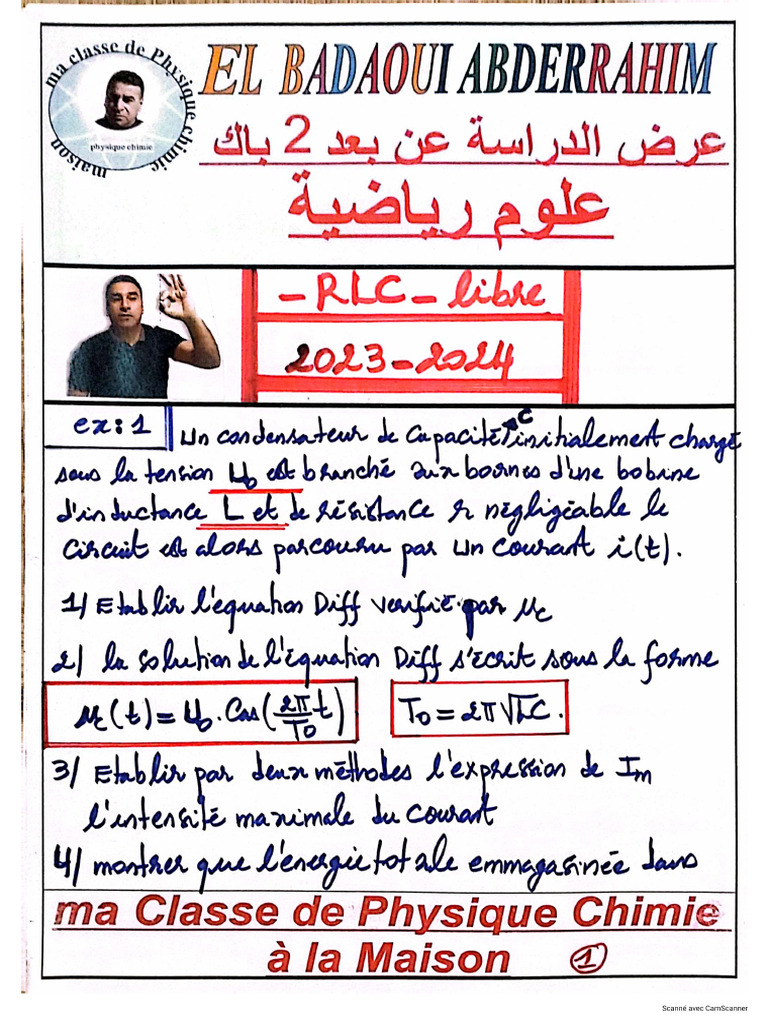 ma classe de Physique chimie
maison
physique chimie
EL BADAOUI ABDERRAHIM
عرض الدراسة عن بعد 2 باك
علوم رياضية
- RLC - libre
2023-2024
ex:1 Un condensateur de capacité C initialement chargé
sous la tension U₀ est branché aux bornes d'une bobine
d'inductance L et de résistance r négligéable le
circuit est alors parcouru par un courant i(t).
1/ Etablir l'equation Diff verifié par uc
2/ la solution de l'équation Diff s'écrit sous la forme
uc(t) = U₀. Cos(2π/T₀ t) T₀ = 2π√LC.
3/ Etablir par deux méthodes l'expression de Im
l'intensité maximale du courant
4/ montrer que l'énergie totale emmagasinée dans
ma Classe de Physique Chimie
à la Maison 1
Scanné avec CamScanner